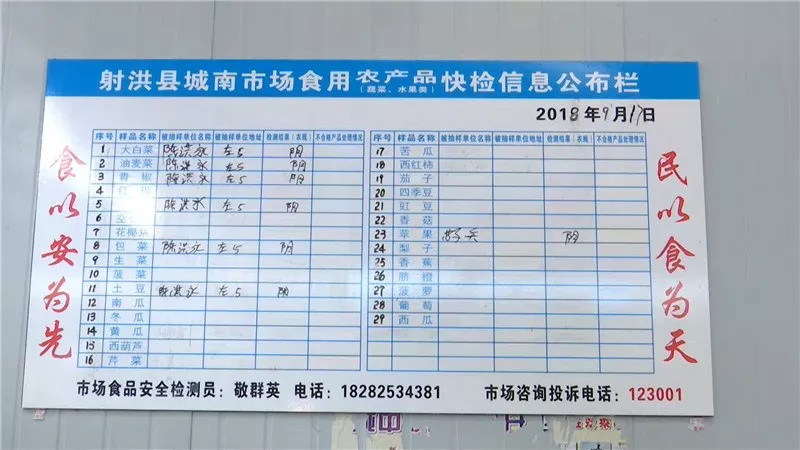 射洪县城南市场食用农产品快检信息公布栏
(蔬菜、水果类)
2018年9月17日
食以安为先
序号 样品名称 被抽样单位名称 被抽样单位地址 检测结果(农残) 不合格产品处理情况
1 大白菜 陈洪永 左5 阴
2 油麦菜 陈洪永 左5 阴
3 青椒 陈洪永 左5 阴
4
5 陈洪永 左5 阴
6
7 花椰菜
8 包菜 陈洪永 左5 阴
9 生菜
10 菠菜
11 土豆 陈洪永 左5 阴
12 南瓜
13 冬瓜
14 黄瓜
15 西葫芦
16 芹菜
序号 样品名称 被抽样单位名称 被抽样单位地址 检测结果(农残) 不合格产品处理情况
17 苦瓜
18 西红柿
19 茄子
20 四季豆
21 豇豆
22 香菇
23 苹果 阴
24 梨子
25 香蕉
26 脐橙
27 菠萝
28 葡萄
29 西瓜
民以食为天
市场食品安全检测员：敬群英 电话：18282534381 市场咨询投诉电话：123001